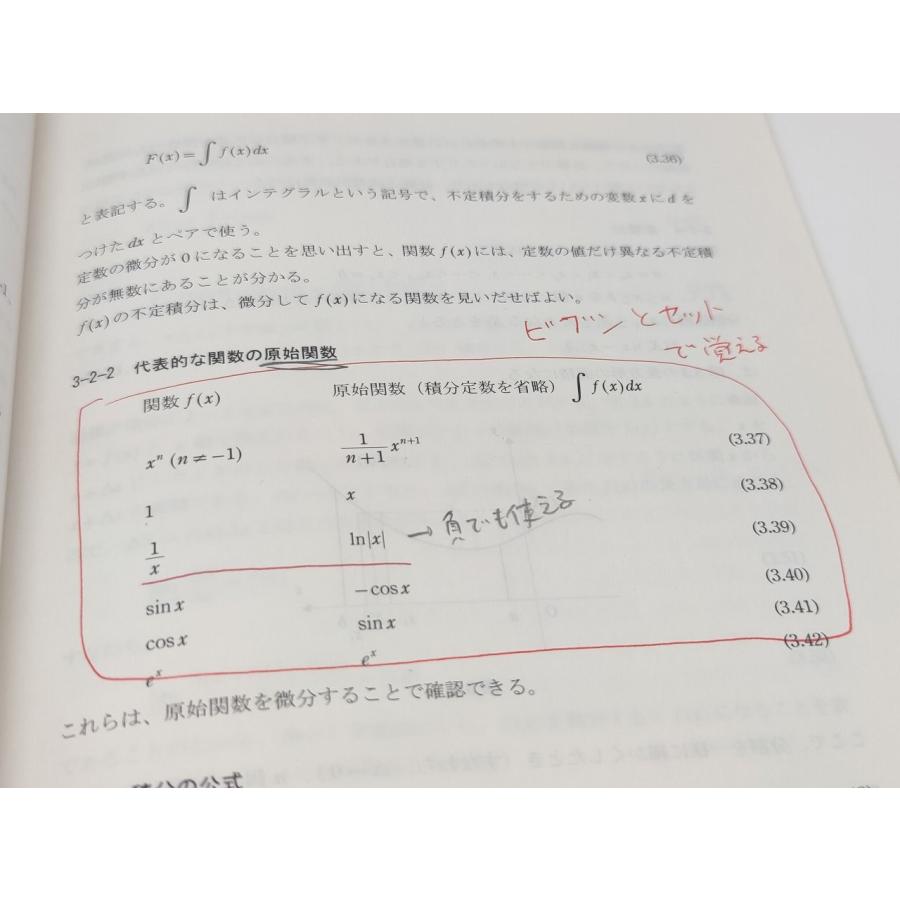 F(x)=∫f(x)dx (3.36)
と表記する。∫ はインテグラルという記号で、不定積分をするための変数xにdを
つけたdxとペアで使う。
定数の微分が0になることを思い出すと、関数f(x)には、定数の値だけ異なる不定積
分が無数にあることが分かる。
f(x)の不定積分は、微分してf(x)になる関数を見いだせばよい。
ビブンとセット
で覚える
3-2-2 代表的な関数の原始関数
関数f(x) 原始関数（積分定数を省略）∫f(x)dx
xⁿ (n≠−1) 1/(n+1) xⁿ⁺¹ (3.37)
1 x (3.38)
1/x ln|x| → 負でも使える (3.39)
sin x −cos x (3.40)
cos x sin x (3.41)
eˣ eˣ (3.42)
これらは、原始関数を微分することで確認できる。
の公式